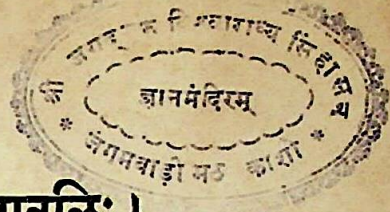 श्री जगद्गुरु विश्वाराध्य सिंहासन
ज्ञानमंदिरम्
* जंगमवाड़ी मठ काशी *
वलिः ।